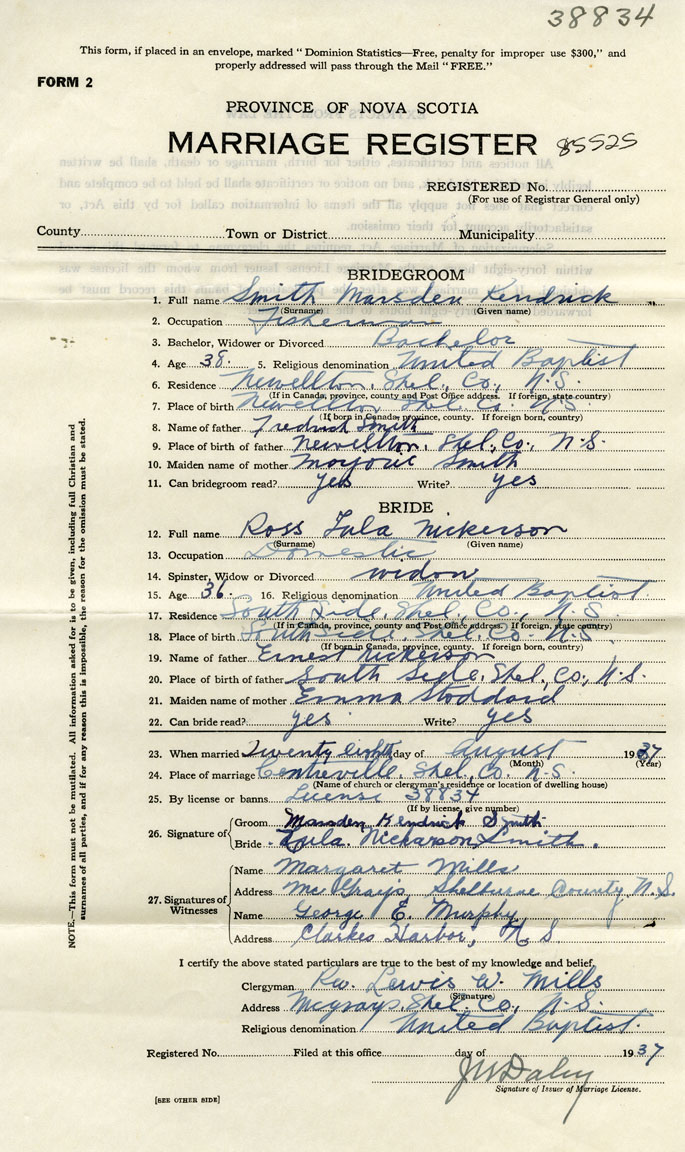 38834
This form, if placed in an envelope, marked "Dominion Statistics—Free, penalty for improper use $300," and
properly addressed will pass through the Mail "FREE."
FORM 2
PROVINCE OF NOVA SCOTIA
MARRIAGE REGISTER 85525
REGISTERED No.
(For use of Registrar General only)
County Town or District Municipality
BRIDEGROOM
1. Full name Smith Marsden Kendrick
(Surname) (Given name)
2. Occupation Fisherman
3. Bachelor, Widower or Divorced Bachelor
4. Age 38. 5. Religious denomination United Baptist
6. Residence Newellton, Shel, Co, N.S.
(If in Canada, province, county and Post Office address. If foreign, state country)
7. Place of birth Newellton Shel Co. N.S.
(If born in Canada, province, county. If foreign born, country)
8. Name of father Fredrick Smith
9. Place of birth of father Newellton, Shel, Co, N.S.
10. Maiden name of mother Marjorie Smith
11. Can bridegroom read? yes Write? yes
BRIDE
12. Full name Ross Lula Nickerson
(Surname) (Given name)
13. Occupation Domestic
14. Spinster, Widow or Divorced widow
15. Age 36. 16. Religious denomination United Baptist.
17. Residence South Side, Shel, Co, N.S.
(If in Canada, province, county and Post Office address. If foreign, state country)
18. Place of birth South Side, Shel. Co. N.S.
(If born in Canada, province, county. If foreign born, country)
19. Name of father Ernest Nickerson
20. Place of birth of father South Side, Shel, Co, N.S.
21. Maiden name of mother Emma Stoddard
22. Can bride read? yes Write? yes
23. When married Twenty eighth day of August 1937
(Month) (Year)
24. Place of marriage Centreville, Shel, Co. N.S.
(Name of church or clergyman's residence or location of dwelling house)
25. By license or banns License 38834
(If by license, give number)
26. Signature of Groom Marsden Kendrick Smith
Bride Lula Nickerson Smith.
27. Signatures of Witnesses
Name Margaret Mills
Address McGrays, Shelburne County, N.S.
Name George E. Murphy
Address Clarkes Harbor, N.S
I certify the above stated particulars are true to the best of my knowledge and belief,
Clergyman Rev. Lewis W. Mills
(Signature)
Address McGrays, Shel. Co, N.S.
Religious denomination United Baptist.
Registered No. Filed at this office day of 1937
J W Daley
Signature of Issuer of Marriage License.
[SEE OTHER SIDE]
NOTE.—This form must not be mutilated. All information asked for is to be given, including full Christian and
surnames of all parties, and if for any reason this is impossible, the reason for the omission must be stated.